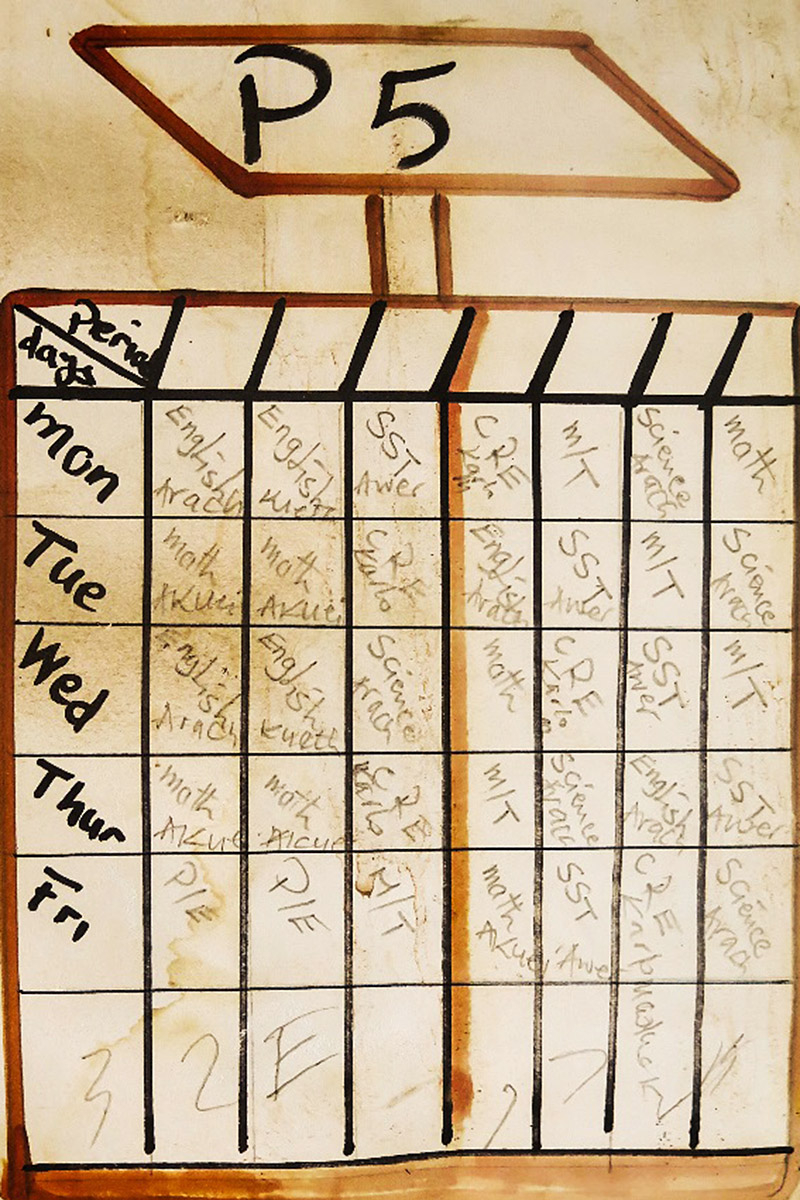 P 5
Period
days
Mon
English
Arach
English
Kueth
SST
Awer
CRE
M/T
Science
Arach
math
Tue
math
Akuei
math
Akuei
CRE
Karlo
English
Arach
SST
Awer
M/T
Science
Arach
Wed
English
Arach
English
Kueth
Science
Arach
math
CRE
Karlo
SST
Awer
M/T
Thur
math
AKuei
math
Akuei
CRE
Karlo
M/T
Science
Arach
English
Arach
SST
Awer
Fri
P/E
P/E
M/T
math
AKuei
SST
Awe
CRE
Science
Arach
3
2
E